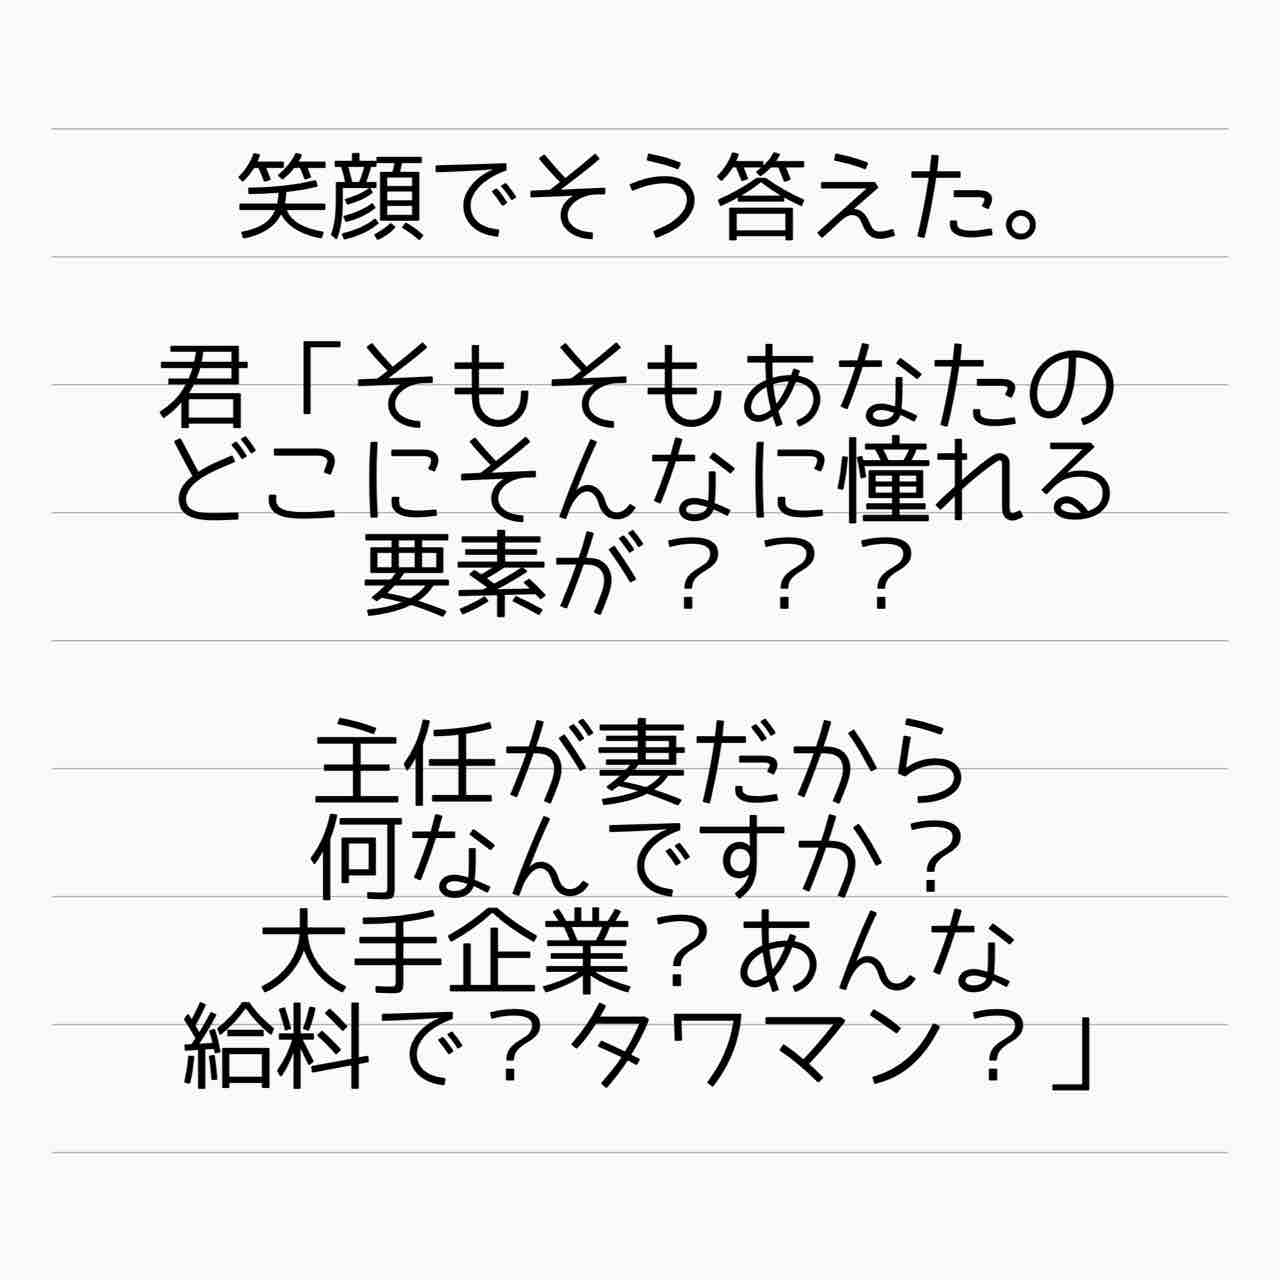 笑顔でそう答えた。
君「そもそもあなたの
どこにそんなに憧れる
要素が？？？
主任が妻だから
何なんですか？
大手企業？あんな
給料で？タワマン？」